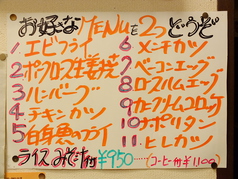 お好きなMENUを2つどうぞ
1.エビフライ
2.ポークロース生姜焼
3.ハンバーグ
4.チキンカツ
5.白身魚のフライ
6.メンチカツ
7.ベーコンエッグ
8.ロースハムエッグ
9.カニクリームコロッケ
10.ナポリタン
11.ヒレカツ
ライス みそ汁付 ¥950……(コーヒー付¥1100)